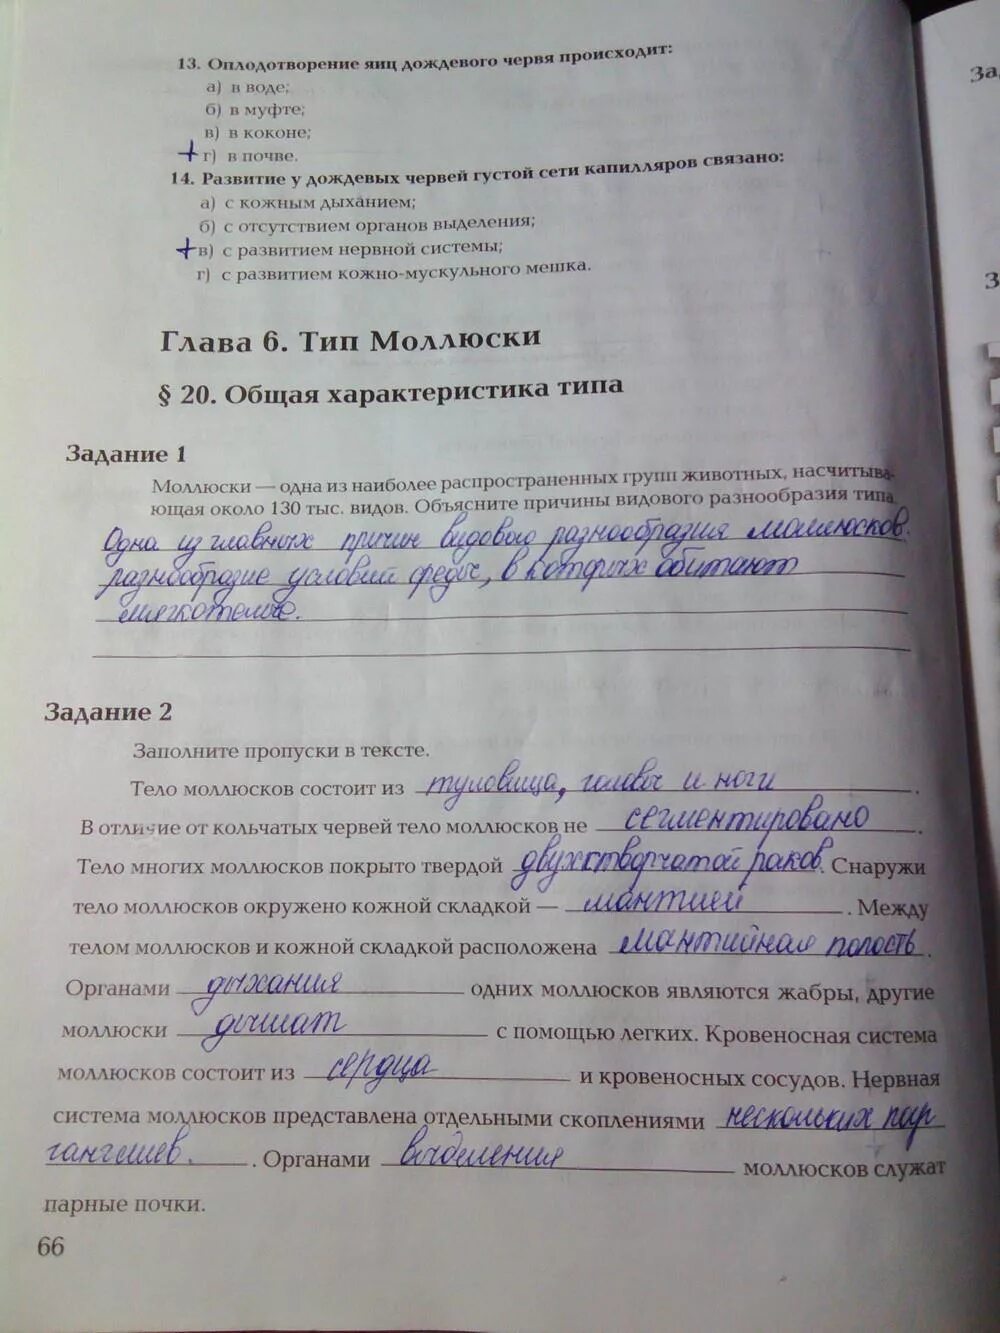 13. Оплодотворение яиц дождевого червя происходит:
а) в воде;
б) в муфте;
в) в коконе;
+ г) в почве.
14. Развитие у дождевых червей густой сети капилляров связано:
а) с кожным дыханием;
б) с отсутствием органов выделения;
+ в) с развитием нервной системы;
г) с развитием кожно-мускульного мешка.
Глава 6. Тип Моллюски
§ 20. Общая характеристика типа
Задание 1
Моллюски — одна из наиболее распространенных групп животных, насчитыва-
ющая около 130 тыс. видов. Объясните причины видового разнообразия типа
Одна из главных причин видового разнообразия моллюсков.
разнообразие условий среды, в которых обитают
мягкотелые.
Задание 2
Заполните пропуски в тексте.
Тело моллюсков состоит из туловища, головы и ноги.
В отличие от кольчатых червей тело моллюсков не сегментировано.
Тело многих моллюсков покрыто твердой двухстворчатой раков. Снаружи
тело моллюсков окружено кожной складкой — мантией. Между
телом моллюсков и кожной складкой расположена мантийная полость.
Органами дыхания одних моллюсков являются жабры, другие
моллюски дышат с помощью легких. Кровеносная система
моллюсков состоит из сердца и кровеносных сосудов. Нервная
система моллюсков представлена отдельными скоплениями нескольких пар
ганглиев. Органами выделения моллюсков служат
парные почки.
66
За
З